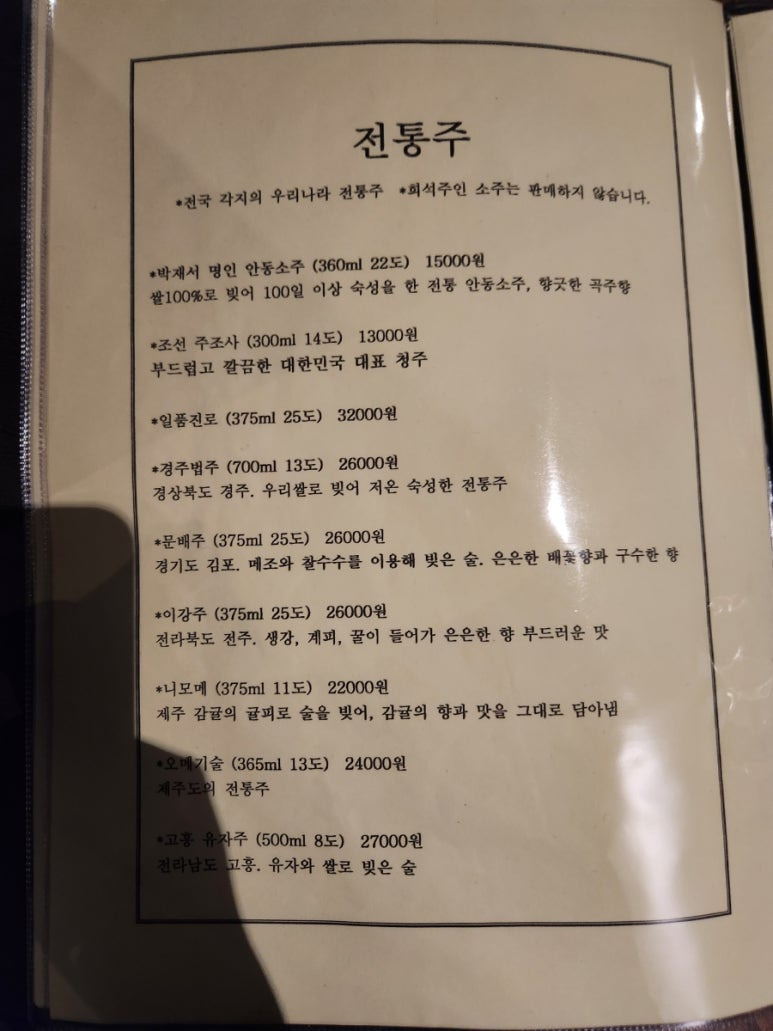 전통주
*전국 각지의 우리나라 전통주 *희석주인 소주는 판매하지 않습니다.
*박재서 명인 안동소주 (360ml 22도) 15000원
쌀100%로 빚어 100일 이상 숙성을 한 전통 안동소주, 향긋한 곡주향
*조선 주조사 (300ml 14도) 13000원
부드럽고 깔끔한 대한민국 대표 청주
*일품진로 (375ml 25도) 32000원
*경주법주 (700ml 13도) 26000원
경상북도 경주. 우리쌀로 빚어 저온 숙성한 전통주
*문배주 (375ml 25도) 26000원
경기도 김포. 메조와 찰수수를 이용해 빚은 술. 은은한 배꽃향과 구수한 향
*이강주 (375ml 25도) 26000원
전라북도 전주. 생강, 계피, 꿀이 들어가 은은한 향 부드러운 맛
*니모메 (375ml 11도) 22000원
제주 감귤의 귤피로 술을 빚어, 감귤의 향과 맛을 그대로 담아냄
*오메기술 (365ml 13도) 24000원
제주도의 전통주
*고흥 유자주 (500ml 8도) 27000원
전라남도 고흥. 유자와 쌀로 빚은 술